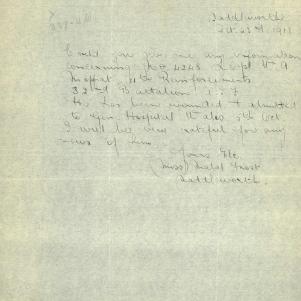 Saddleworth
Oct 23rd, 1918
Could you give me any information
concerning No 4248 L Cpl W A
Moffat 11th Reinforcements
32nd Battalion
He has been wounded & admitted
to Gen. Hospital 5th Oct
I will be very grateful for any
news of him
Yours Etc
(Miss) Frost
Saddleworth